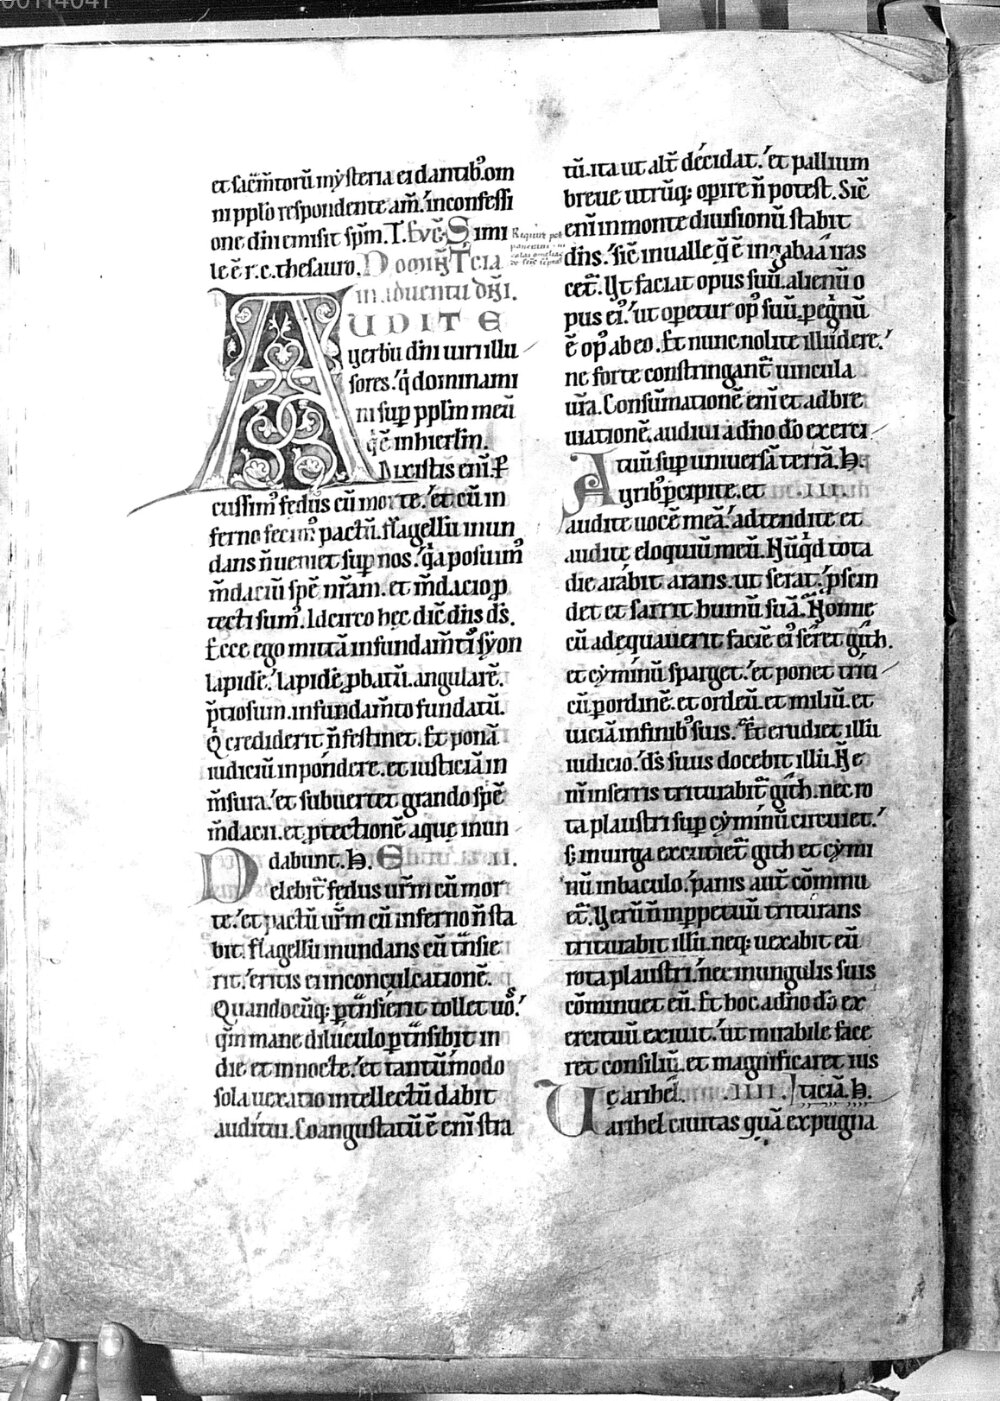 00114041
et sac̄m̄torū mẏsteria ei dantib᷒ om
ni pp̄lo respondente am̄. in confessi
one dn̄i emisit sp̄m. T. Evḡ. Simi
le ē. r. c. thesauro. Domin̄. Tcia
in aduentu dn̄i.
AUDITE
uerbū dn̄i uiri illu
sores. q̇ dominami
ni sup̱ pp̄lm meū
q̇ ē in hierl̄m.
Dixistis eni. ꝑ
cussim᷒ fedus cū morte. et cū in
ferno fecim᷒ pactū. flagellū inun
dans n̄ ueniet sup̱ nos. q̇a posuim᷒
m̄daciū spē nr̄am. et m̄dacio ꝓ
tecti sum᷒. Idcirco hęc dic̄ dn̄s ds̄.
Ecce ego mittā in fundam̄tis sẏon
lapidē. lapidē ꝓbatū. angularē.
p̄tiosum. in fundam̄to fundatū.
Q̇ crediderit n̄ festinet. Et ponā
iudiciū in pondere. et iusticiā in
m̄sura. et subuertet grando spē
m̄dacii. et ꝓtectionē aquę inun
dabunt. H. II.
Delebit᷑ fędus ur̄m cū mor
te. et pactū ur̄m cū inferno n̄ sta
bit. flagellū inundans cū t̄nsie
rit. eritis ei in conculcationē.
Quandocūq; ꝑt̄nsierit tollet uos.
qm̄ mane diluculo ꝑt̄nsibit in
die et in nocte. et tantūmodo
sola uexatio intellectū dabit
auditui. Coangustatū ē eni stra
tū. ita ut alt̄ decidat. et pallium
breue utrūq; opire n̄ potest. Sic̄
eni in monte diuisionū stabit
dn̄s. sic̄ in ualle q̄ ē in gabaa iras
cet᷑. Vt faciat opus suū. alienū o
pus ei᷒. ut opetur op᷒ suū. peḡnū
ē op᷒ ab eo. Et nunc nolite illudere.
ne forte constringant᷑ uincula
ur̄a. Consūmationē eni et adbre
uiationē. audiui a dn̄o dō exerci
tuū sup̱ uniuersā terrā. H.
Aurib᷒ ꝑcipite. et III.
audite uocē meā. adtendite et
audite eloquiū meū. Nūq̇d tota
die arabit arans. ut serat. ꝓscin
det et sarrit humū suā. Nonne
cū adequauerit faciē ei᷒ seret gith.
et cẏminū sparget. et ponet triti
cū ꝑ ordinē. et ordeū. et miliū. et
uiciā in finib᷒ suis. Et erudiet illū
iudicio. ds̄ suus docebit illū. Ne
ni in serris triturabit᷑ gith. nec ro
ta plaustri sup̱ cẏminū circuiet.
s; in uirga excutiet᷑ gith et cẏmi
nū in baculo. panis aut̄ cōminu
et᷑. Verūn̄ in ꝑpetuū triturans
triturabit illū. neq; uexabit eū
rota plaustri. nec in ungulis suis
cōminuet eū. Et hoc. a dn̄o dō ex
ercituū exiuit. ut mirabile face
ret consiliū. et magnificaret ius
Vę arihel. IIII. ticiā. H.
arihel ciuitas quā expugna